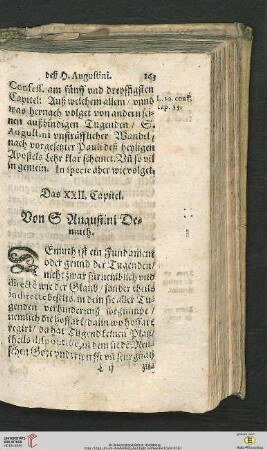 deß H. Augustini. 163
Confess. am fünff und dreyssigsten
Capitel: Auß welchem allem / unnd
was hernach volget von andern sei-
nen außbündigen Tugenden / S.
Augustini unsträfflicher Wandel /
nach vorgesetzter Pauli deß heyligen
Apostels Lehr klar scheinet. Uñ so vil
in gemein. In specie aber wie volget.
L. 10. conf.
cap. 35.
Das XXII. Capitel.
Von S Augustini De-
muth.
DEmuth ist ein Fundament
oder grund der Tugenden /
nicht zwar fürnemblich und
wie der Glaub / sonder theils
indirecte dessets, in dem sie aller Tu-
genden verhinderung wegnimpt /
nemlich die hoffart / dann wo hoffart
regirt / da hat Tugend keinen Platz /
theils in dem sie den Men-
schen Gott underwirfft
L ij